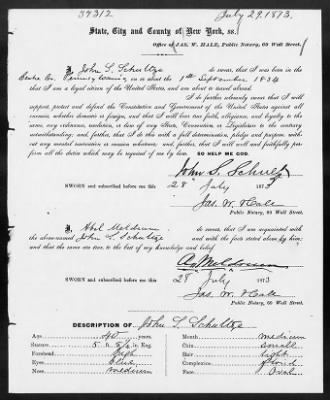 37312
July 29, 1873.
State, City and County of New York, ss.
Office of JAS. W. HALE, Public Notary, 60 Wall Street.
I, John S. Schultze do swear, that I was born in the
Centre Co. Pennsylvania, on or about the 1st September 1834
that I am a legal citizen of the United States, and am about to travel abroad.
And I do further solemnly swear that I will
support, protect and defend the Constitution and Government of the United States against all
enemies, whether domestic or foreign, and that I will bear true faith, allegiance, and loyalty to the
same, any ordinance, resolution, or law of any State, Convention or Legislature to the contrary
notwithstanding; and further, that I do this with a full determination, pledge and purpose, with-
out any mental reservation or evasion whatsoever; and, further, that I will well and faithfully per-
form all the duties which may be required of me by law.
SO HELP ME GOD.
John S. Schultze
SWORN and subscribed before me this
28 July 1873
Jas. W. Hale
Public Notary, 60 Wall Street.
I, Abel Meldrum do swear, that I am acquainted with
the above-named John S. Schultze and with the facts stated above by him;
and that the same are true to the best of my knowledge and belief
A. Meldrum
SWORN and subscribed before me this
28 " July " 1873
Jas. W. Hale
Public Notary, 60 Wall Street
DESCRIPTION OF John S. Schultze
Age years. Mouth medium
Stature 5 ft. Eng. Chin small
Forehead high Hair light
Eyes blue Complexion florid
Nose medium Face Oval